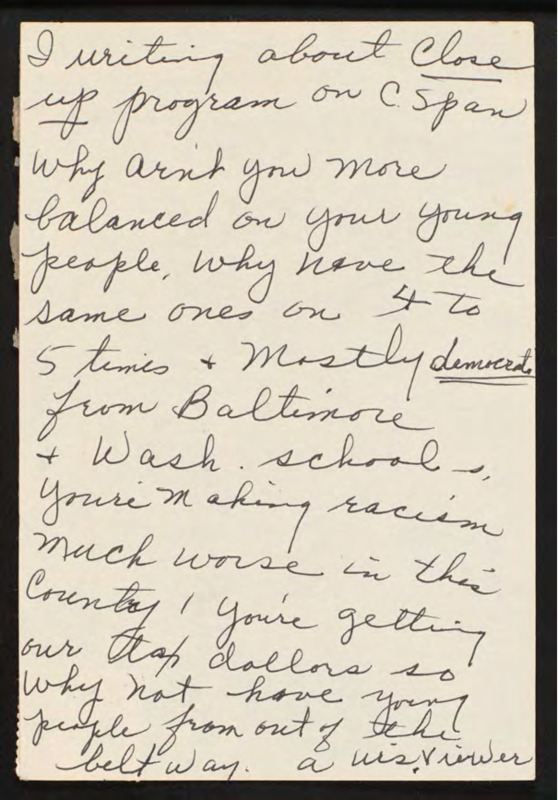 I writing about Close
up program on C. Span
Why arn't you more
balanced on your young
people, Why have the
same ones on 4 to
5 times + Mostly democrats
from Baltimore
+ Wash. schools,
You're making racism
much worse in this
Country! You're getting
our tax dollars so
why not have young
people from out of the
beltway. a wis. Viewer